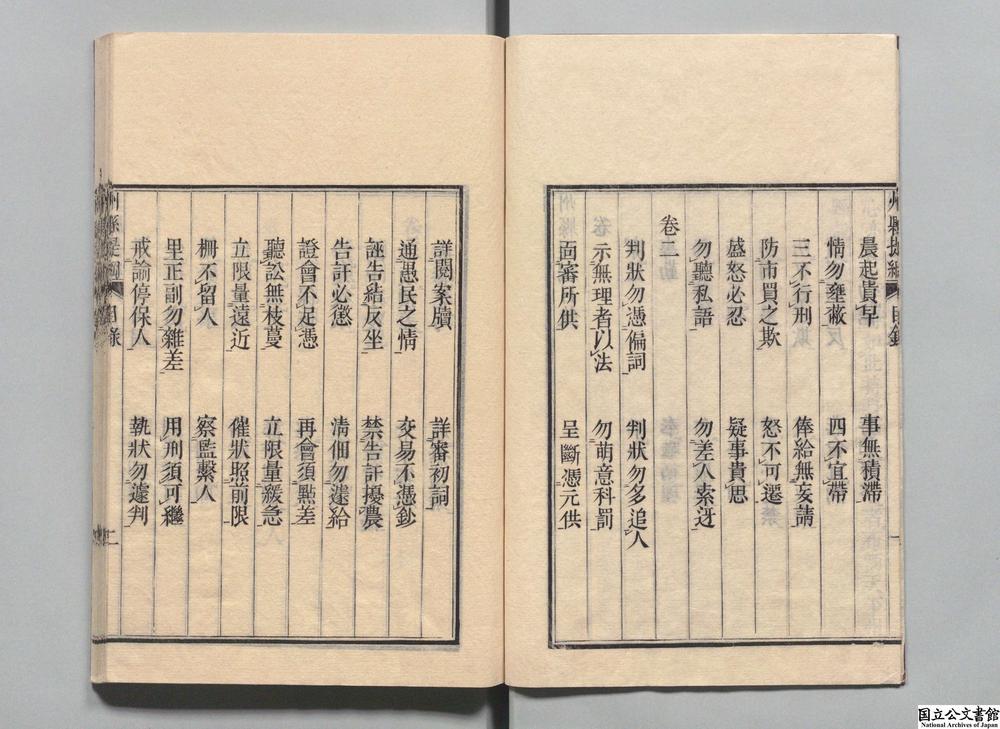 州縣提綱 目錄 一
晨起貴早 事無積滯
情勿壅蔽 四不宜帶
三不行刑 俸給無妄請
防市買之欺 怒不可遷
盛怒必忍 疑事貴思
勿聽私語 勿差人索迓
卷二
判狀勿憑偏詞 判狀勿多追人
示無理者以法 勿萌意科罰
面審所供 呈斷憑元供
詳閱案牘 詳審初詞
通愚民之情 交易不憑鈔
誣告結反坐 禁告訐擾農
告訐必懲 請佃勿遽給
證會不足憑 再會須點差
聽訟無枝蔓 立限量緩急
立限量遠近 催狀照前限
柵不留人 察監繫人
里正副勿雜差 用刑須可繼
戒諭停保人 執狀勿遽判
州縣提綱 目錄 二
国立公文書館
National Archives of Japan